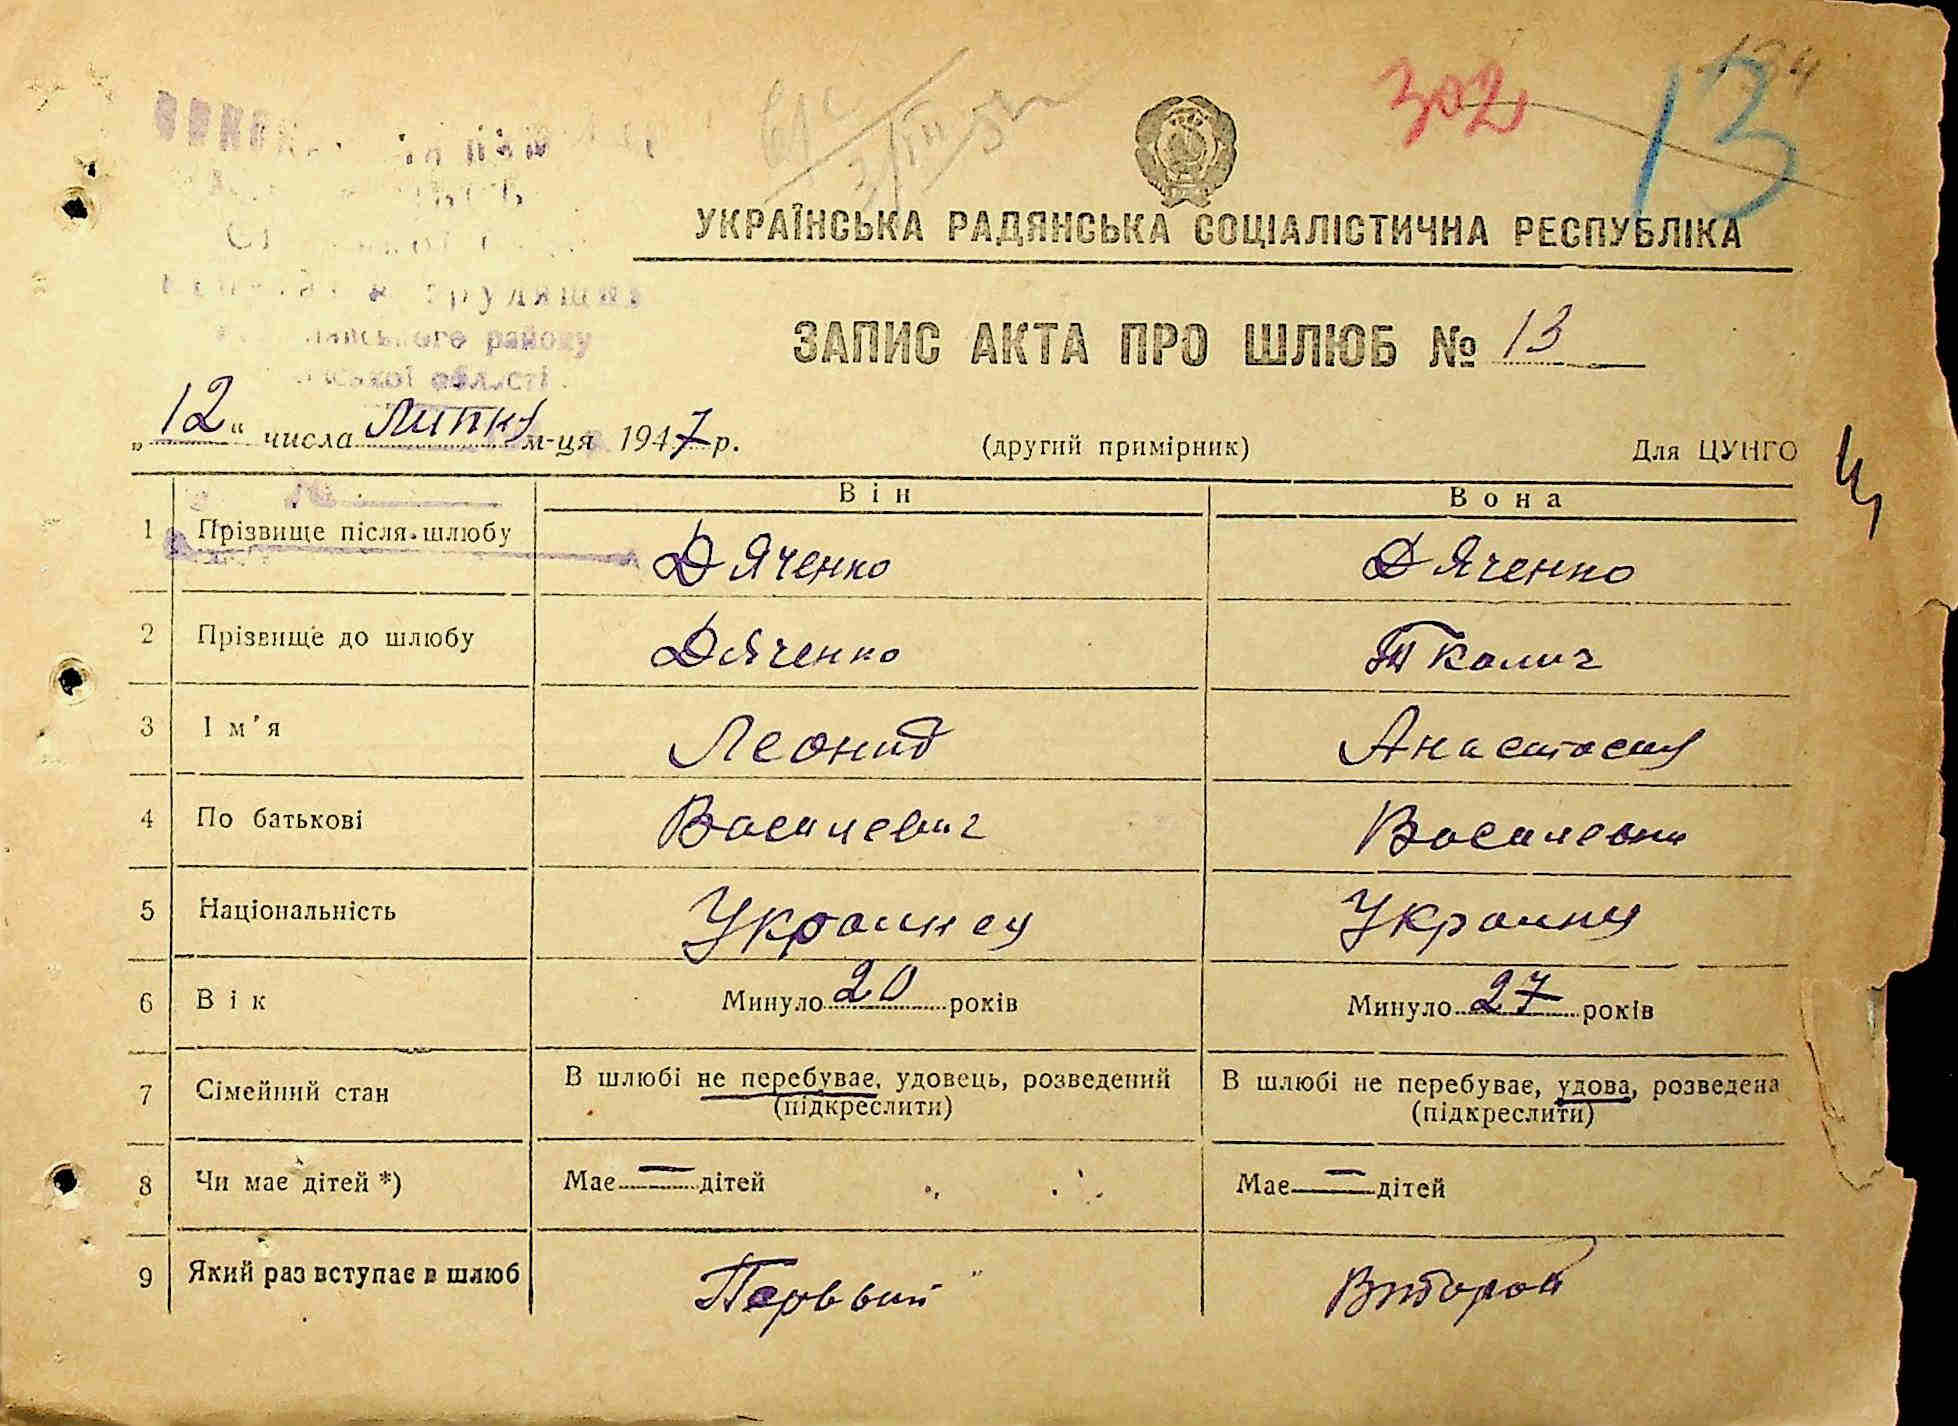 302
13
УКРАЇНСЬКА РАДЯНСЬКА СОЦІАЛІСТИЧНА РЕСПУБЛІКА
району
області
ЗАПИС АКТА ПРО ШЛЮБ № 13
„12“ числа Липня м-ця 1947 р. (другий примірник) Для ЦУНГО
Він Вона
1 Прізвище після шлюбу Дяченко Дяченко
2 Прізвище до шлюбу Дяченко Ткалич
3 Ім'я Леонид Анастасия
4 По батькові Василевич Василевна
5 Національність Украинец Украинка
6 Вік Минуло 20 років Минуло 27 років
7 Сімейний стан В шлюбі не перебуває, удовець, розведений В шлюбі не перебуває, удова, розведена
(підкреслити) (підкреслити)
8 Чи має дітей *) Має — дітей Має — дітей
9 Який раз вступає в шлюб Первый Второй